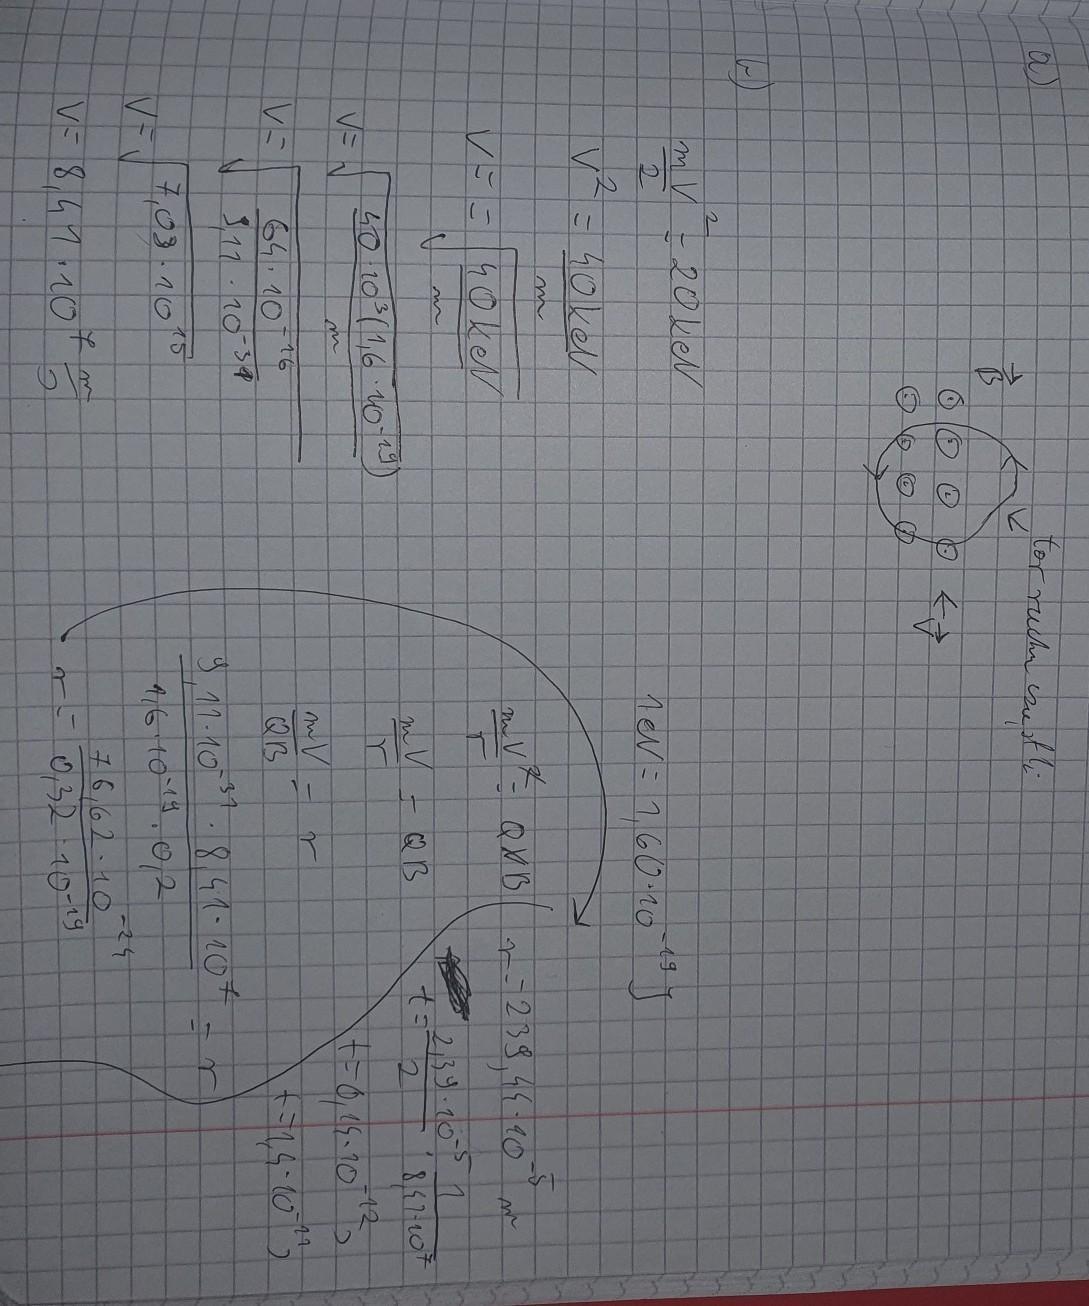 a)
tor ruchu cząstki
B
V
b)
mV²/2 = 20keV
1eV = 1,60·10⁻¹⁹J
V² = 40keV/m
V = = √(40keV/m)
V = √(40·10³(1,6·10⁻¹⁹)/m)
V = √(64·10⁻¹⁶/9,11·10⁻³¹)
V = √(7,03·10¹⁵)
V = 8,41·10⁷ m/s
mV²/r = QVB
mV/r = QB
mV/QB = r
9,11·10⁻³¹·8,41·10⁷/1,6·10⁻¹⁹·0,2 = r
r = 76,62·10⁻²⁴/0,32·10⁻¹⁹
r = 239,44·10⁻⁵ m
t = 2,39·10⁻⁵/2 · 1/8,41·10⁷
t = 0,14·10⁻¹² s
t = 1,4·10⁻¹¹ s